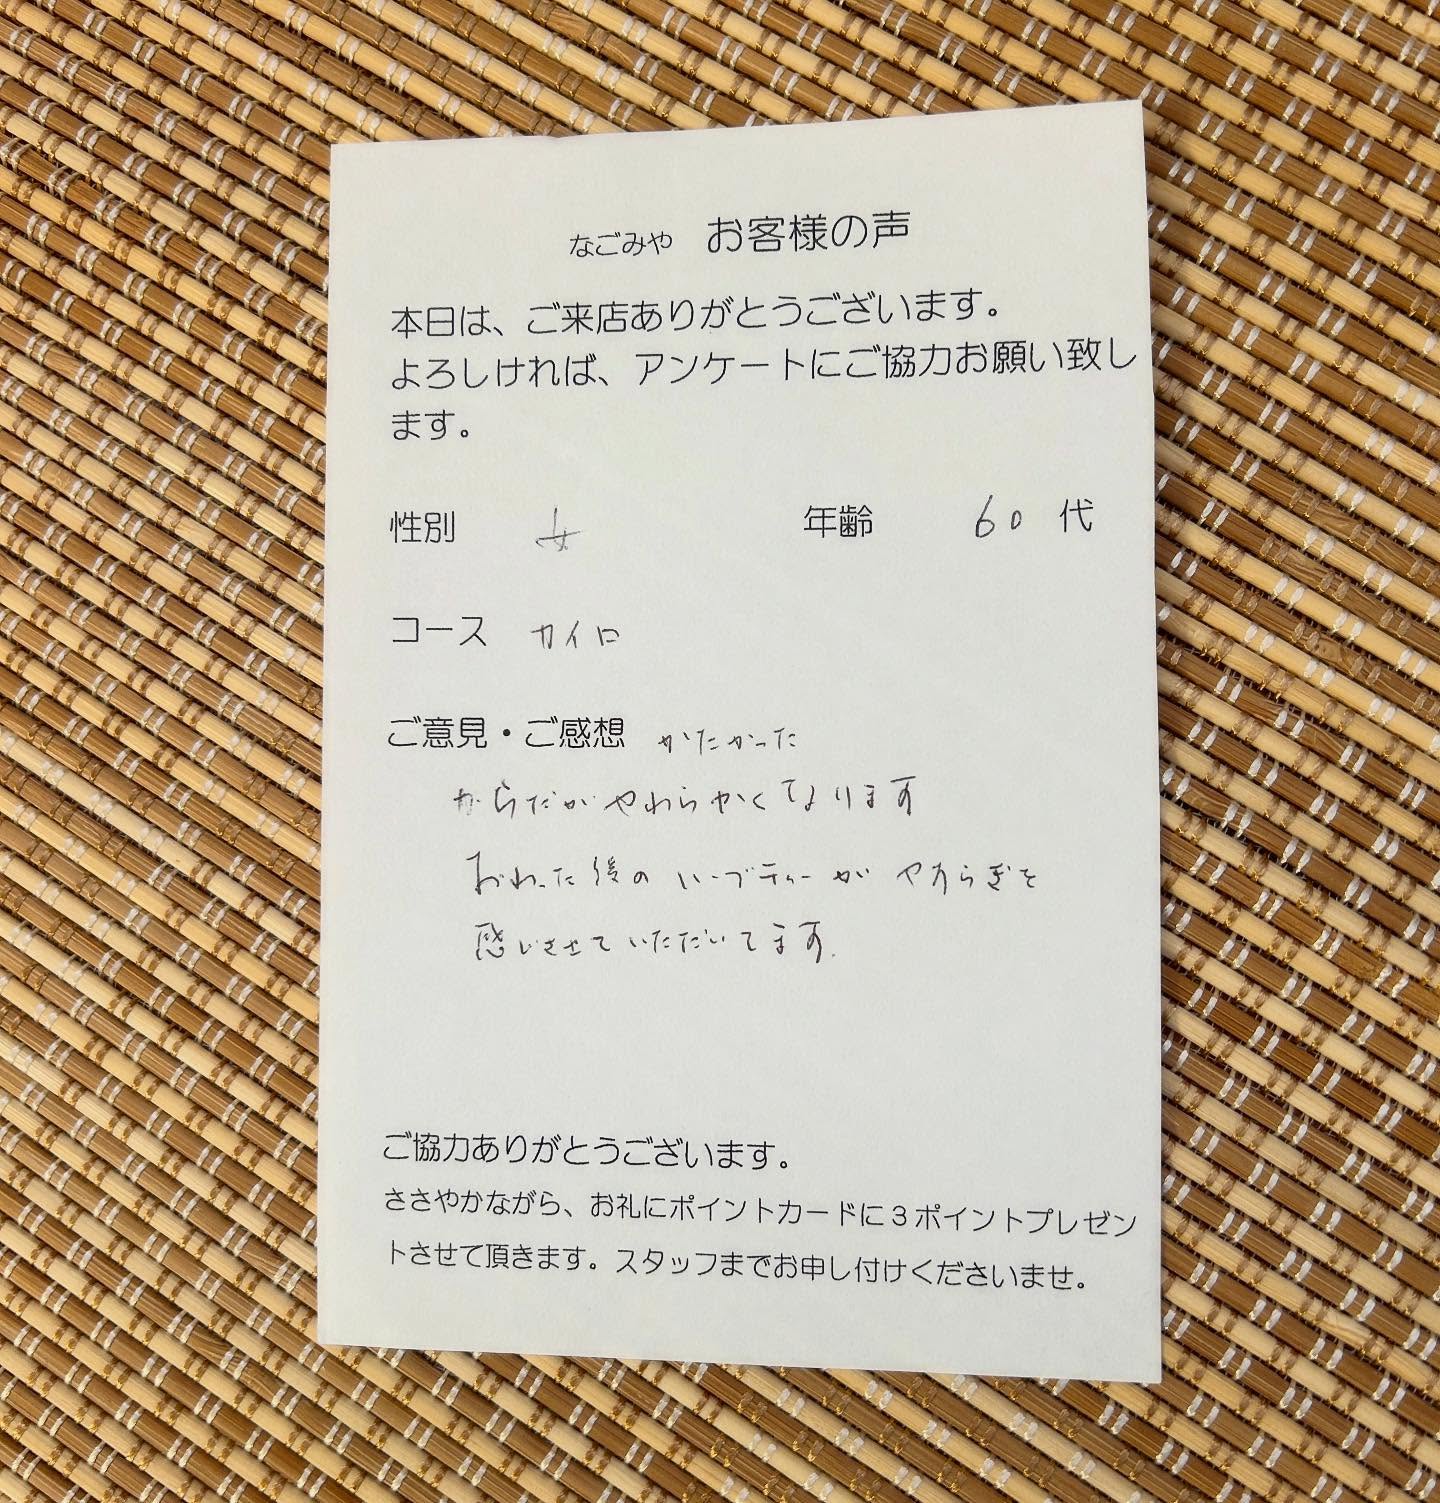 なごみや　お客様の声
本日は、ご来店ありがとうございます。
よろしければ、アンケートにご協力お願い致し
ます。
性別　女　年齢　60 代
コース　カイロ
ご意見・ご感想　かたかった
からだがやわらかくなります
おわった後のハーブティーがやすらぎを
感じさせていただいてます.
ご協力ありがとうございます。
ささやかながら、お礼にポイントカードに３ポイントプレゼン
トさせて頂きます。スタッフまでお申し付けくださいませ。